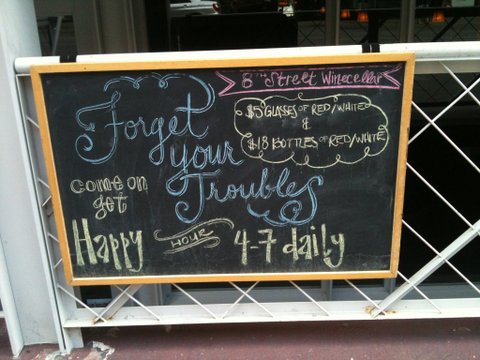 8TH STREET WINECELLAR
$5 GLASSES OF RED/WHITE
&
$18 BOTTLES OF RED/WHITE
Forget
your
Troubles
come on
get
Happy HOUR 4-7 daily